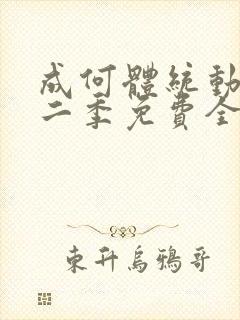 成何體統動
二季免費全
東升烏鴉哥